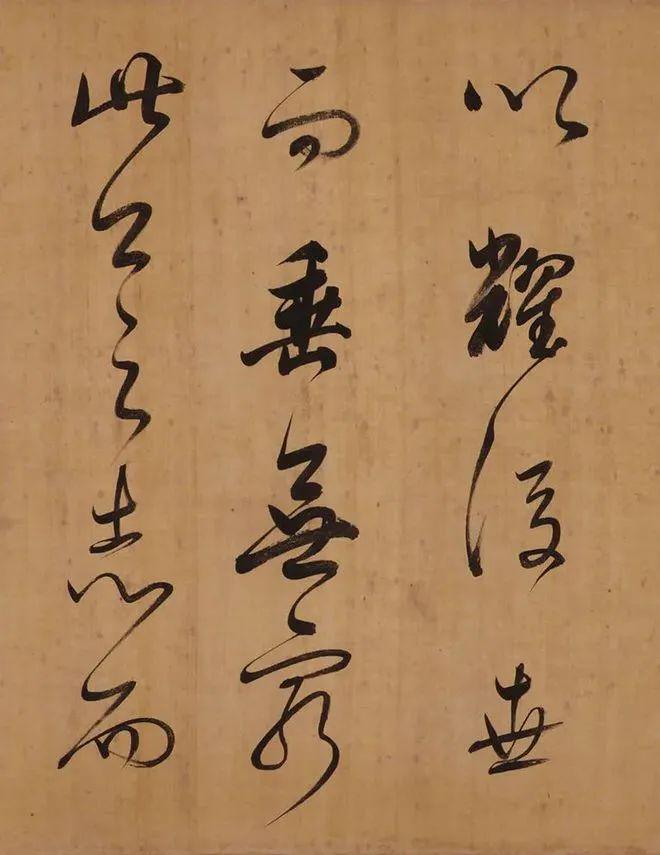 以耀後世
而垂無窮
此公之志而